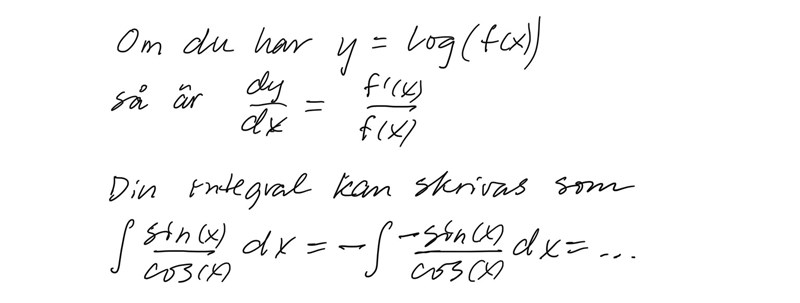 Om du har y = log(f(x))
så är dy/dx = f'(x)/f(x)
Din integral kan skrivas som
∫ sin(x)/cos(x) dx = -∫ -sin(x)/cos(x) dx = ...